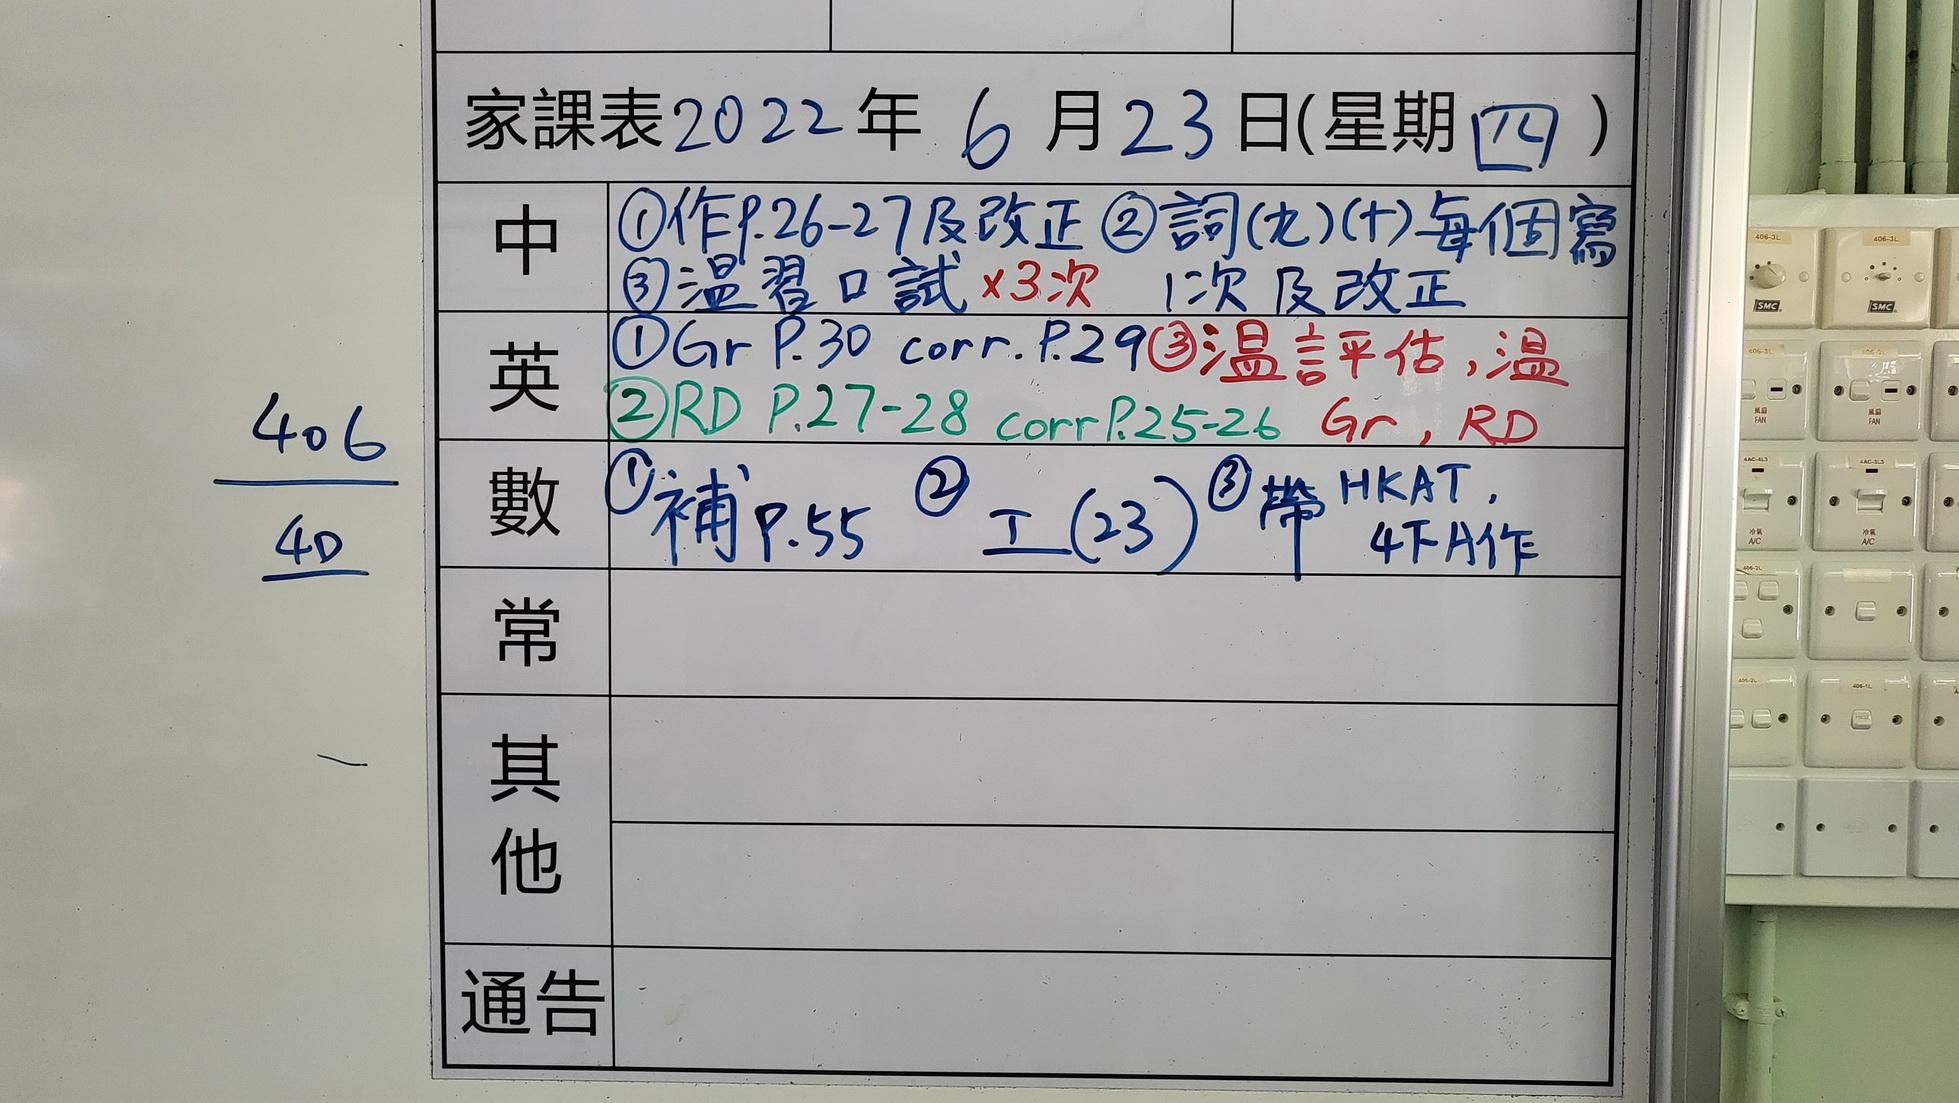 家課表2022年 6月23日(星期四)
中
①作P.26-27及改正 ②詞(九)(十)每個寫
③溫習口試 ×3次 1次及改正
英
①Gr P.30 corr. P.29 ③溫評估,溫
②RD P.27-28 corr P.25-26 Gr, RD
數
①補P.55 ②工(23) ③帶HKAT,
4下A作
常
其他
通告
406
4D
406-3L
406-3L
SMC
SMC
風扇
FAN
風扇
FAN
4AC-4L3
4AC-3L3
冷氣
A/C
冷氣
A/C
406-2L
406-1L